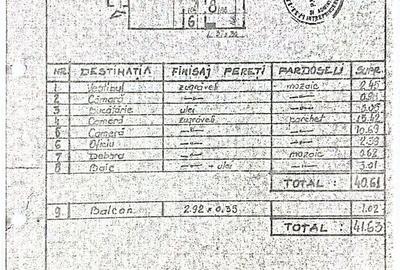 6 8
NR. DESTINAȚIA FINISAJ PEREȚI PARDOSELI SUPR.
1 Vestibul zugrăveli mozaic 2.45
2 Cămară —"— —"— 0.81
3 Bucătărie ulei —"—
4 Cameră zugrăveli parchet 15.42
5 Cameră —"— —"— 10.69
6 Oficiu —"— —"— 2.59
7 Debara —"— mozaic 0.62
8 Baie —"— ulei —"— 3.01
TOTAL : 40.61
9 Balcon 2.92 x 0.35 1.02
TOTAL : 41.63